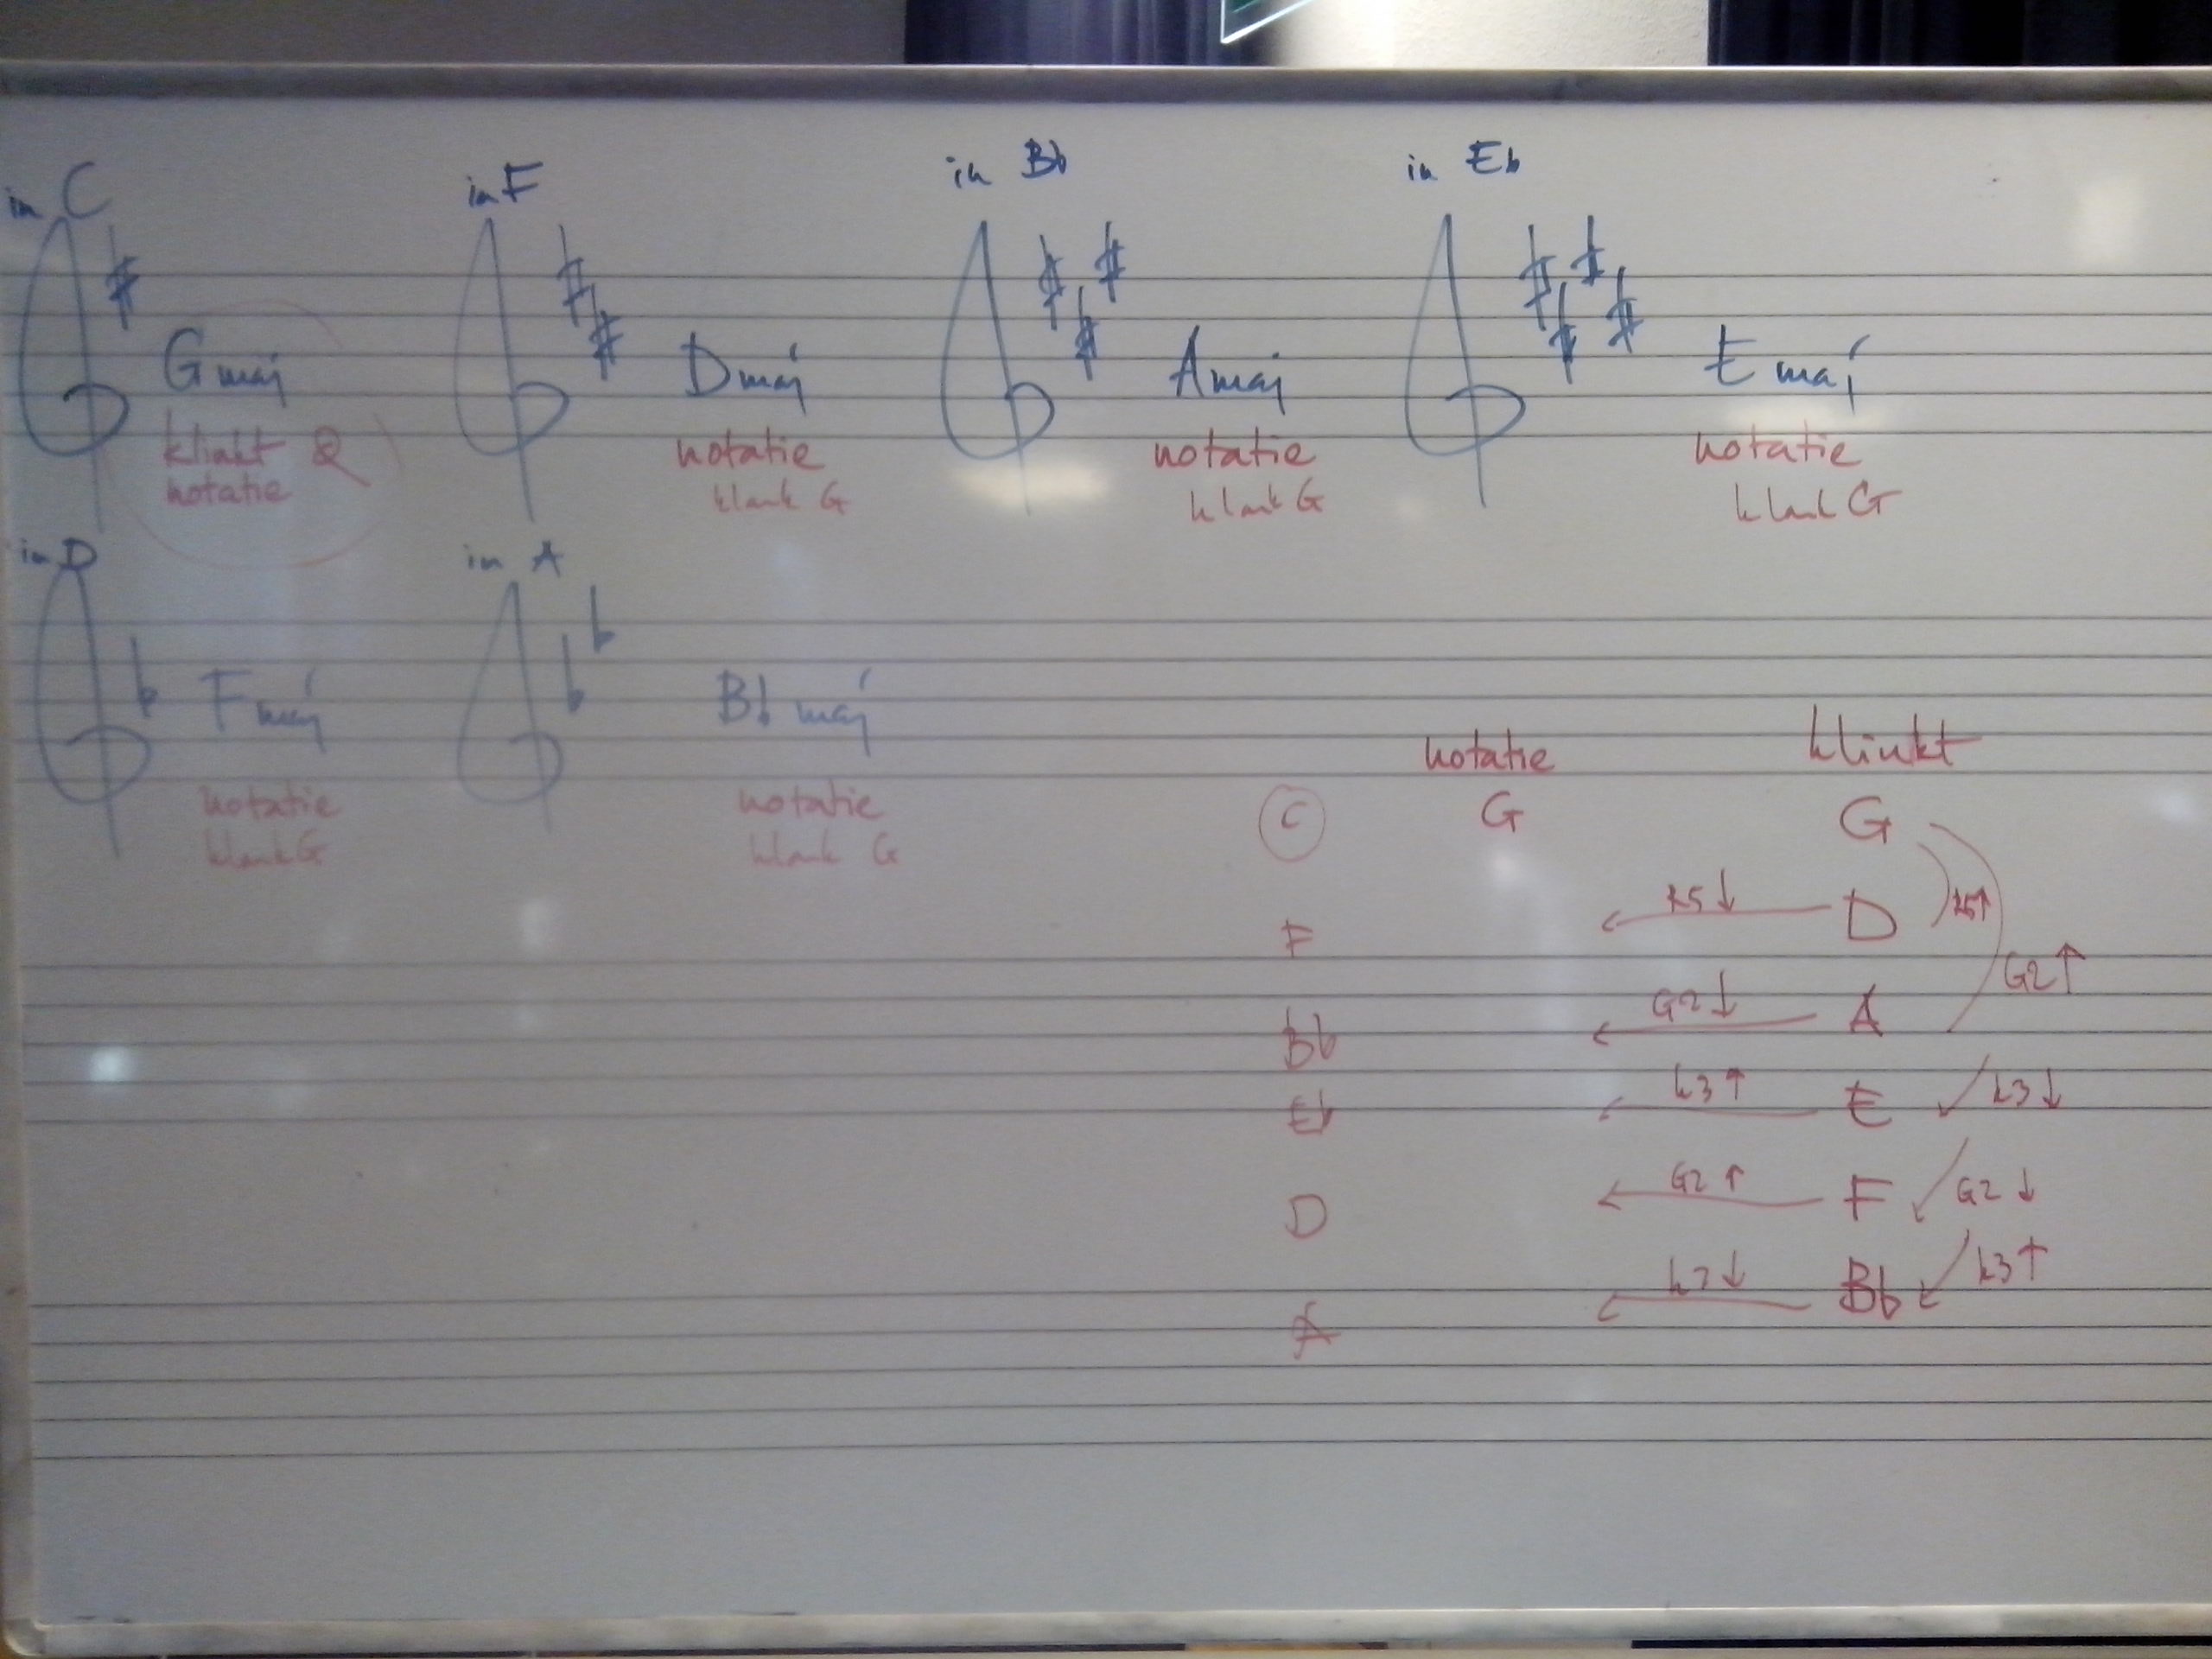 in C
in F
in Bb
in Eb
G maj
D maj
A maj
E maj
klinkt &
notatie
notatie
klank G
notatie
klank G
notatie
klank G
in D
in A
F maj
Bb maj
notatie
klank G
notatie
klank G
notatie klinkt
C G G
F R5↓ D R5↑
G2↑
Bb G2↓ A
Eb k3↑ E k3↓
D G2↑ F G2↓
A k7↓ Bb k3↑